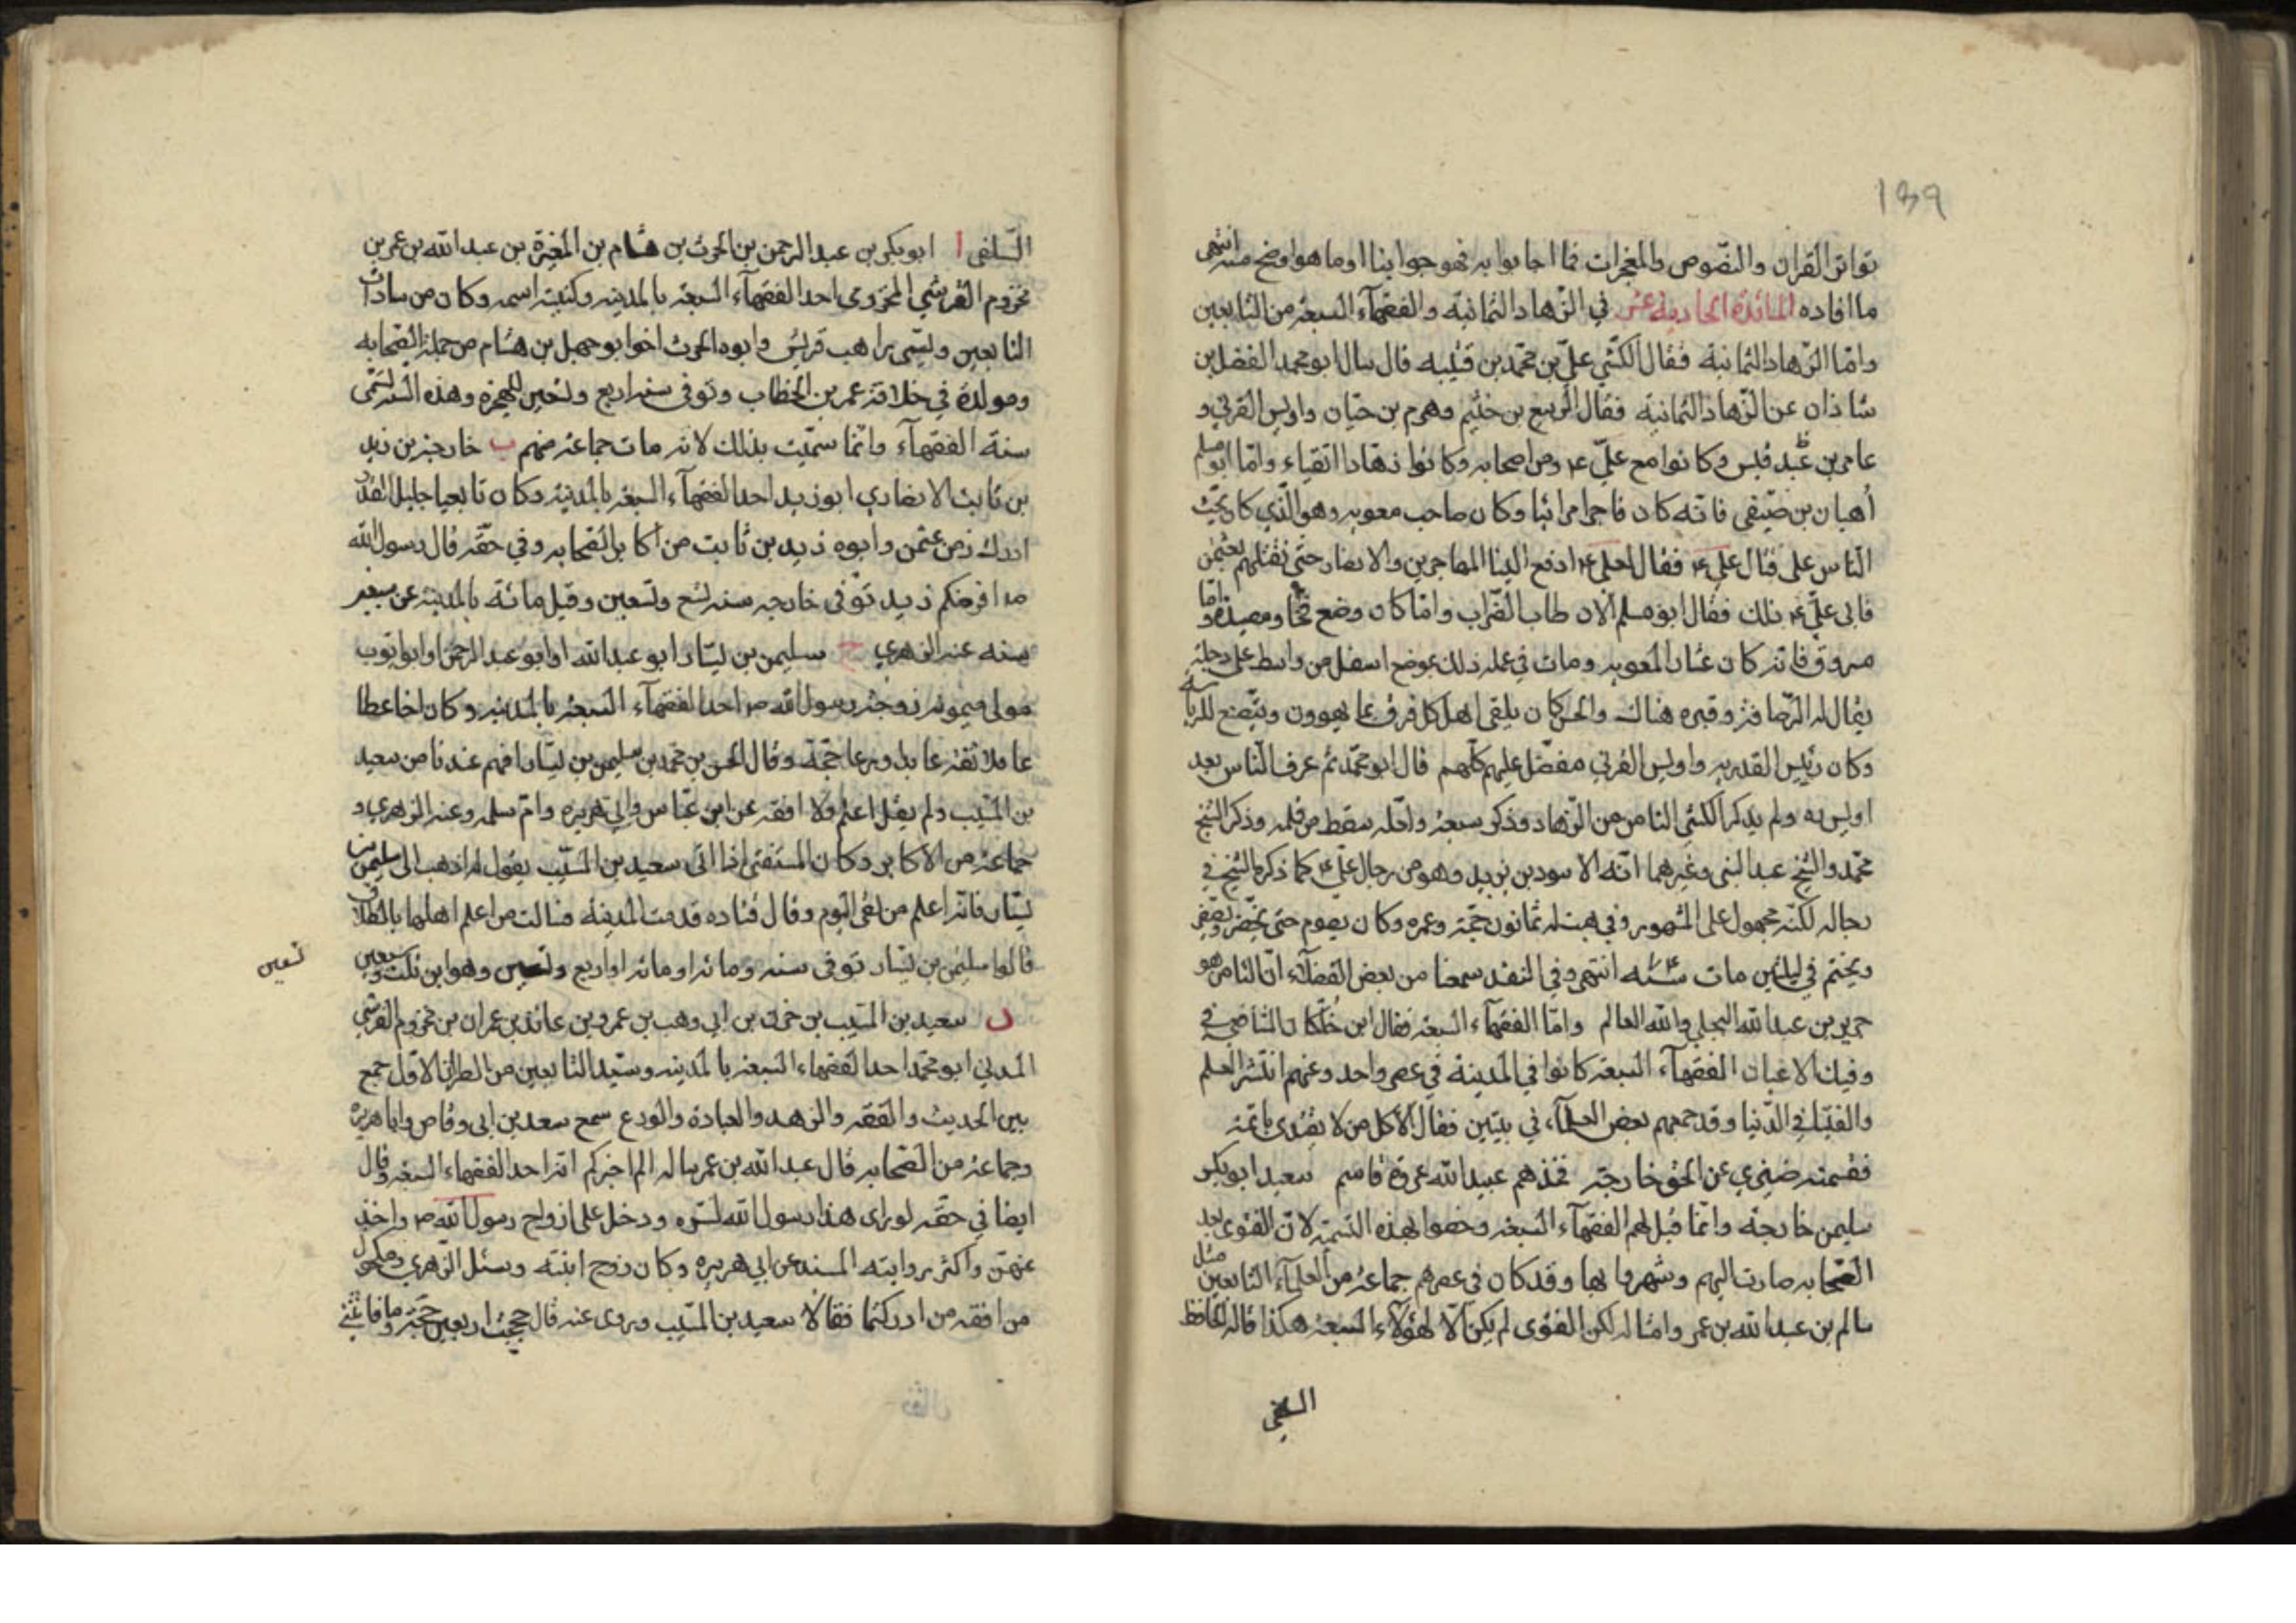 ۱۳۹
تواتر القران والنصوص والمعجزات فما اجابوا به فهو جوابنا او ما هو اوضح منه انتهى
ما افاده المائدة الحادية عشر في الزهاد الثمانية والفقهآء السبعة من التابعين
وامّا الزهاد الثمانية فقال الكشّي عليّ بن محمّد بن قتيبه قال سال ابو محمد الفضل بن
شاذان عن الزهاد الثمانية فقال الربيع بن خثيم وهرم بن حيّان واويس القرني و
عامر بن عبد قيس وكانوا مع عليّ ع ومن اصحابه وكانوا زهادا اتقياء وامّا ابو مسلم
أهبان بن صيّفي فانّه كان فاجرا مرائيا وكان صاحب معويه وهو الّذي كان يحثّ
الناس على قتال علي ع فقال لعلي ع ادفع الينا المهاجرين والانصار حتّى نقتلهم بعثمن
فابى عليّ ع ذلك فقال ابو مسلم الان طاب الضّراب وانّما كان وضع فخّا ومصيدة وامّا
مسروق فانّه كان عشّارا لمعويه ومات في عمله ذلك بموضع اسفل من واسط على دجلة
يقال له الرّصافة وقبره هناك والحسن كان يلقى اهل كل فرقة بما يهوون ويتصنع للرياسة
وكان رئيس القدريه واويس القرني مفضّل عليهم كلّهم قال ابو محمّد ثم عرف الناس بعد
اويس به ولم يذكر الكشي الثامن من الزهاد وذكر سبعة ولعلّه سقط من قلمه وذكر الشيخ
محمّد والشيخ عبد النبى وغيرهما انّه الاسود بن يزيد وهو من رجال عليّ ع كما ذكره الشيخ في
رجاله لكنّه مجهول على المشهور وفي هبت له ثمانون حجّة وعمره وكان يصوم حتى يخضر ويصفر
ويختم في ليلتين مات سنه انتهى وفي النقد سمعنا من بعض الفضلآء انّ الثامن هو
جرير بن عبد الله البجلي والله العالم وامّا الفقهآء السبعة فقال ابن خلّكان الشافعي في
وفيات الاعيان الفقهآء السبعة كانوا في المدينة في عصر واحد وعنهم انتشر العلم
والفتيا في الدّنيا وقد جمعهم بعض العلمآء في بيتين فقال الا كل من لا يقتدى بائمّة
فقسمته ضيزي عن الحق خارجة فخذهم عبيد الله عروة قاسم سعيد ابو بكر
سليمن خارجة وانّما قيل لهم الفقهآء السبعة وخصوا بهذه التسمية لانّ الفتوى بعد
الصّحابه صارت اليهم وشهروا بها وقد كان في عصرهم جماعة من العلمآء التابعين مثل
سالم بن عبد الله بن عمر وامثاله لكن الفتوى لم يكن الّا لهؤلآء السبعة هكذا قاله الحافظ
السلفي
السّلفى ا ابو بكر بن عبد الرحمن بن الحرث بن هشام بن المغيرة بن عبد الله بن عمر بن
مخزوم القرشي المخزومى احد الفقهآء السبعة بالمدينه وكنيته اسمه وكان من سادات
التابعين ويسمى براهب قريش وابوه الحرث اخو ابو جهل بن هشام من جملة الصّحابه
ومولده في خلافة عمر بن الخطاب وتوفى سنه اربع وتسعين للهجرة وهذه السنه تسمّى
سنة الفقهآء وانّما سمّيت بذلك لانه مات جماعة منهم ب خارجة بن زيد
بن ثابت الانصاري ابو زيد احد الفقهآء السبعة بالمدينه وكان تابعيا جليل القدر
ادرك زمن عثمن وابوه زيد بن ثابت من اكابر الصّحابه وفي حقّه قال رسول الله
ص افرضكم زيد توفى خارجه سنه تسع وتسعين وقيل مائة بالمدينه عن سبعين
سنه عنه الزهري ج سليمن بن يسار ابو عبد الله او ابو عبد الرحمن او ابو ايّوب
مولى ميمونه زوجة رسول الله ص احد الفقهآء السبعة بالمدينه وكان اخا عطا
عاملا ثقة عابدا ورعا حجّة وقال الحسن بن محمد بن سليمن بن يسار افهم عندنا من سعيد
بن المسيّب ولم يقل اعلم ولا افقه عن ابن عبّاس وابي هريره وامّ سلمه وعنه الزهري و
جماعة من الاكابر وكان المستفتى اذا اتى سعيد بن المسيّب يقول له اذهب الى سليمن بن
يسار فانّه اعلم من بقى اليوم وقال قتاده قدمت المدينة فسالت من اعلم اهلها بالطلاق
قالوا سليمن بن يسار توفى سنه ومائه او مائه او اربع وتسعين وهو ابن ثلث وسبعين
تسعين
د سعيد بن المسيّب بن حزن بن ابى وهب بن عمرو بن عائذ بن عمران بن مخزوم القرشي
المدني ابو محمّد احد الفقهاء السبعة بالمدينه وسيّد التابعين من الطراز الاوّل جمع
بين الحديث والفقه والزهد والعبادة والورع سمع سعد بن ابى وقاص وابا هريرة
وجماعة من الصّحابه قال عبد الله بن عمر ساله الم اخبركم انه احد الفقهاء السبعة وقال
ايضا في حقّه لو راى هذا رسول الله لسّره ودخل على ازواج رسول الله ص واخذ
عنهنّ واكثر روايته المسند عن ابي هريره وكان زوج ابنته وسئل الزّهري ومكحول
من افقه من ادركتما فقالا سعيد بن المسيّب وروى عنه قال حججت اربعين حجّة وما فاتتني